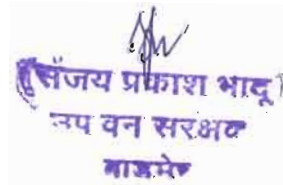 (संजय प्रकाश भादू)
उप वन संरक्षक
बाडमेर